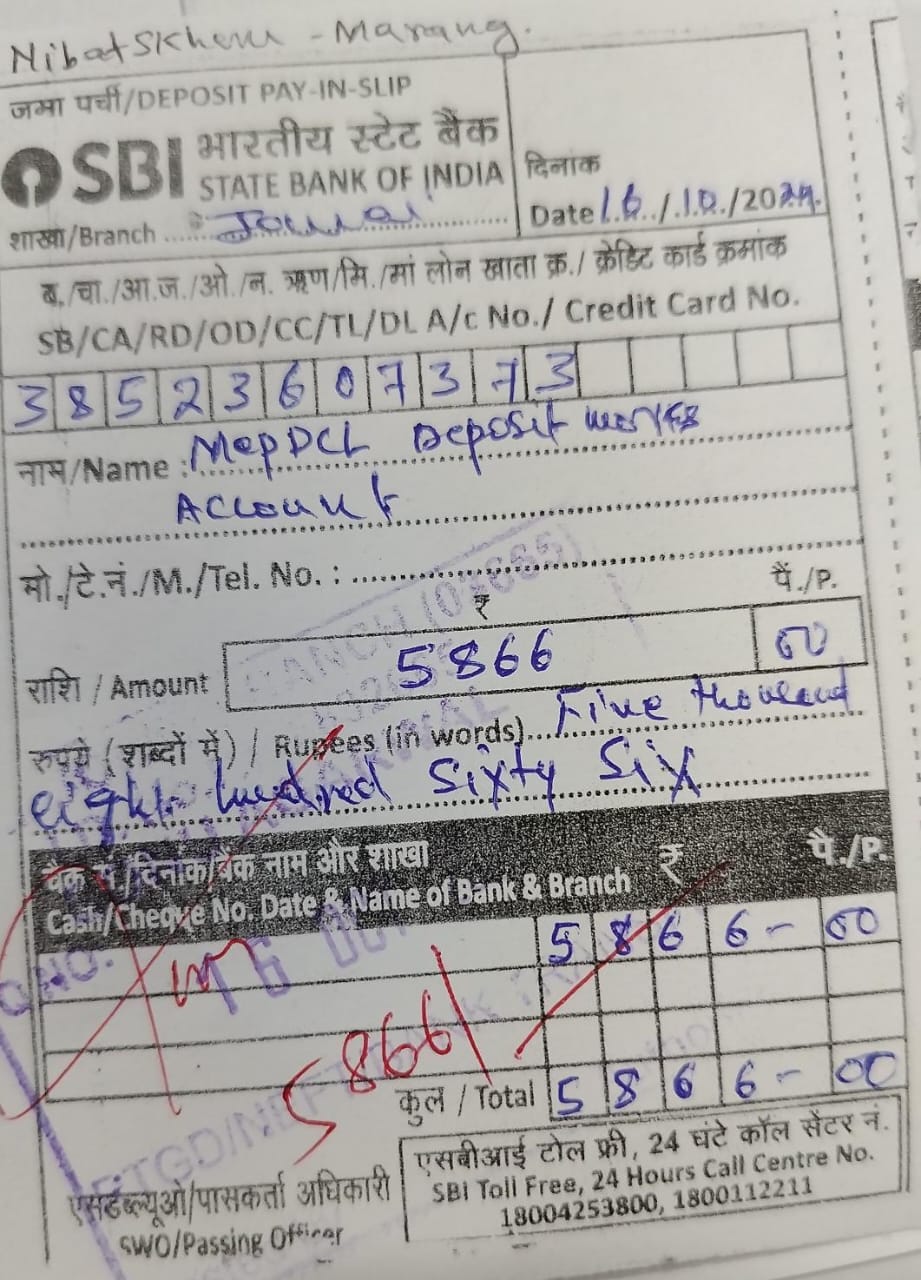 Nibatskhem - Marang.
जमा पर्ची/DEPOSIT PAY-IN-SLIP
SBI भारतीय स्टेट बैंक
STATE BANK OF INDIA
दिनांक
Date 16/10/2024
शाखा/Branch Jowai
ब./चा./आ.ज./ओ./न. ऋण/मि./मां लोन खाता क्र./ क्रेडिट कार्ड क्रमांक
SB/CA/RD/OD/CC/TL/DL A/c No./ Credit Card No.
38523607373
नाम/Name : MePDCL Deposit works
Account
मो./टे.नं./M./Tel. No. :
₹ पै./P.
राशि / Amount 5866 00
रुपये (शब्दों में) / Rupees (in words) Five thousand
eight hundred Sixty Six
चैक सं/दिनांक/बैंक नाम और शाखा ₹ पै./P.
Cash/Cheque No. Date & Name of Bank & Branch
5 8 6 6 - 00
5866/
कुल / Total 5 8 6 6 - 00
एसडब्ल्यूओ/पासकर्ता अधिकारी
SWO/Passing Officer
एसबीआई टोल फ्री, 24 घंटे कॉल सेंटर नं.
SBI Toll Free, 24 Hours Call Centre No.
18004253800, 1800112211